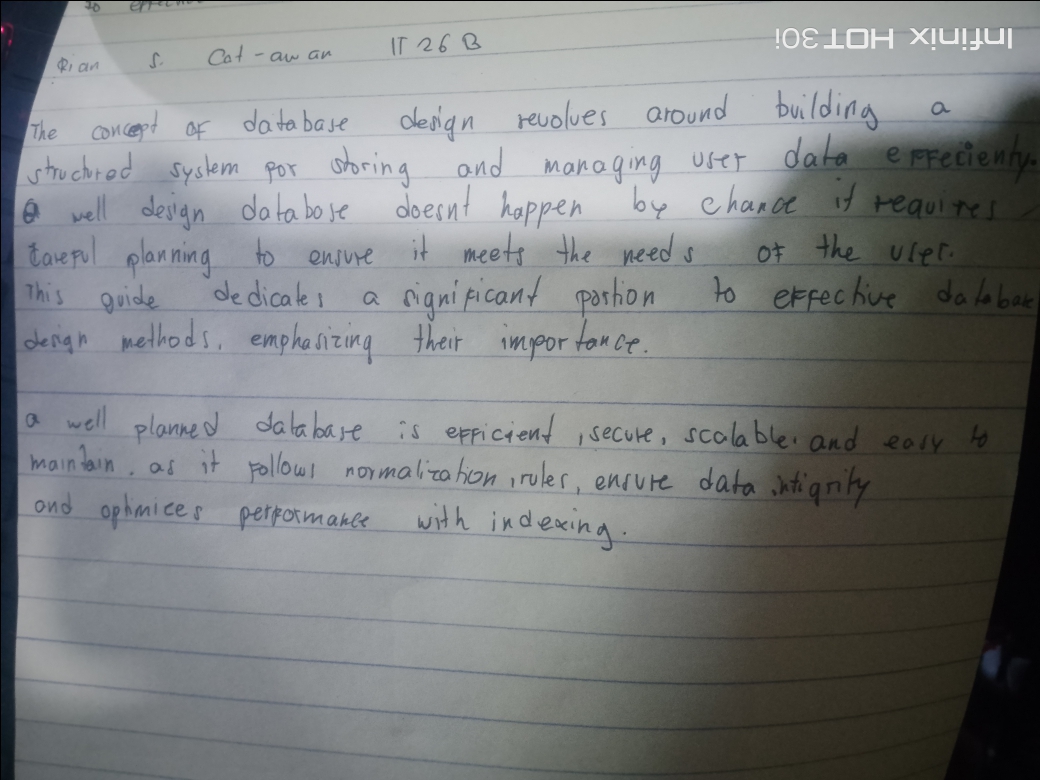 to effective
Rian S. Cat-awan IT 26 B
The concept of database design revolves around building a
structured system for storing and managing user data effecienty.
a well design database doesnt happen by chance it requires
Careful planning to ensure it meets the needs of the user.
This guide dedicates a significant portion to effective database
design methods, emphasizing their importance.
a well planned database is efficient, secure, scalable, and easy to
maintain. as it follows normalization, rules, ensure data intigrity
and optimices performance with indexing.
Infinix HOT 30i